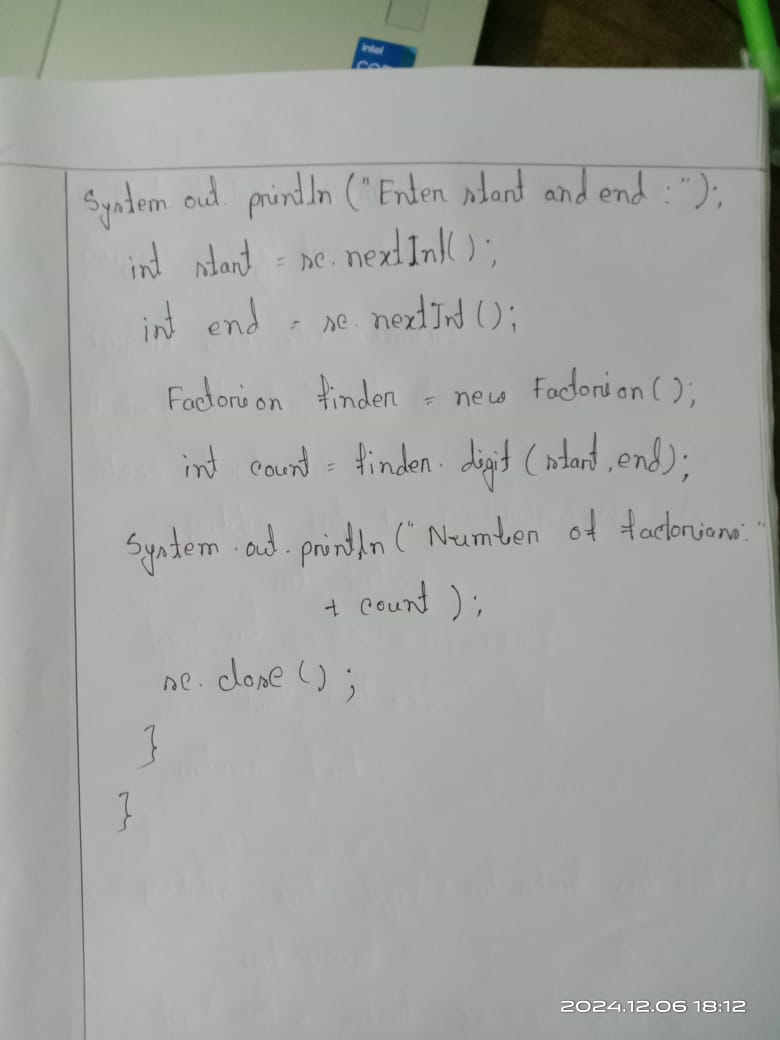 intel
CO
System.out.println("Enter start and end :");
int start = sc.nextInt();
int end = sc.nextInt();
Factorion finder = new Factorion();
int count = finder.digit(start, end);
System.out.println("Number of factorians:"
+ count );
sc.close();
}
}
2024.12.06 18:12